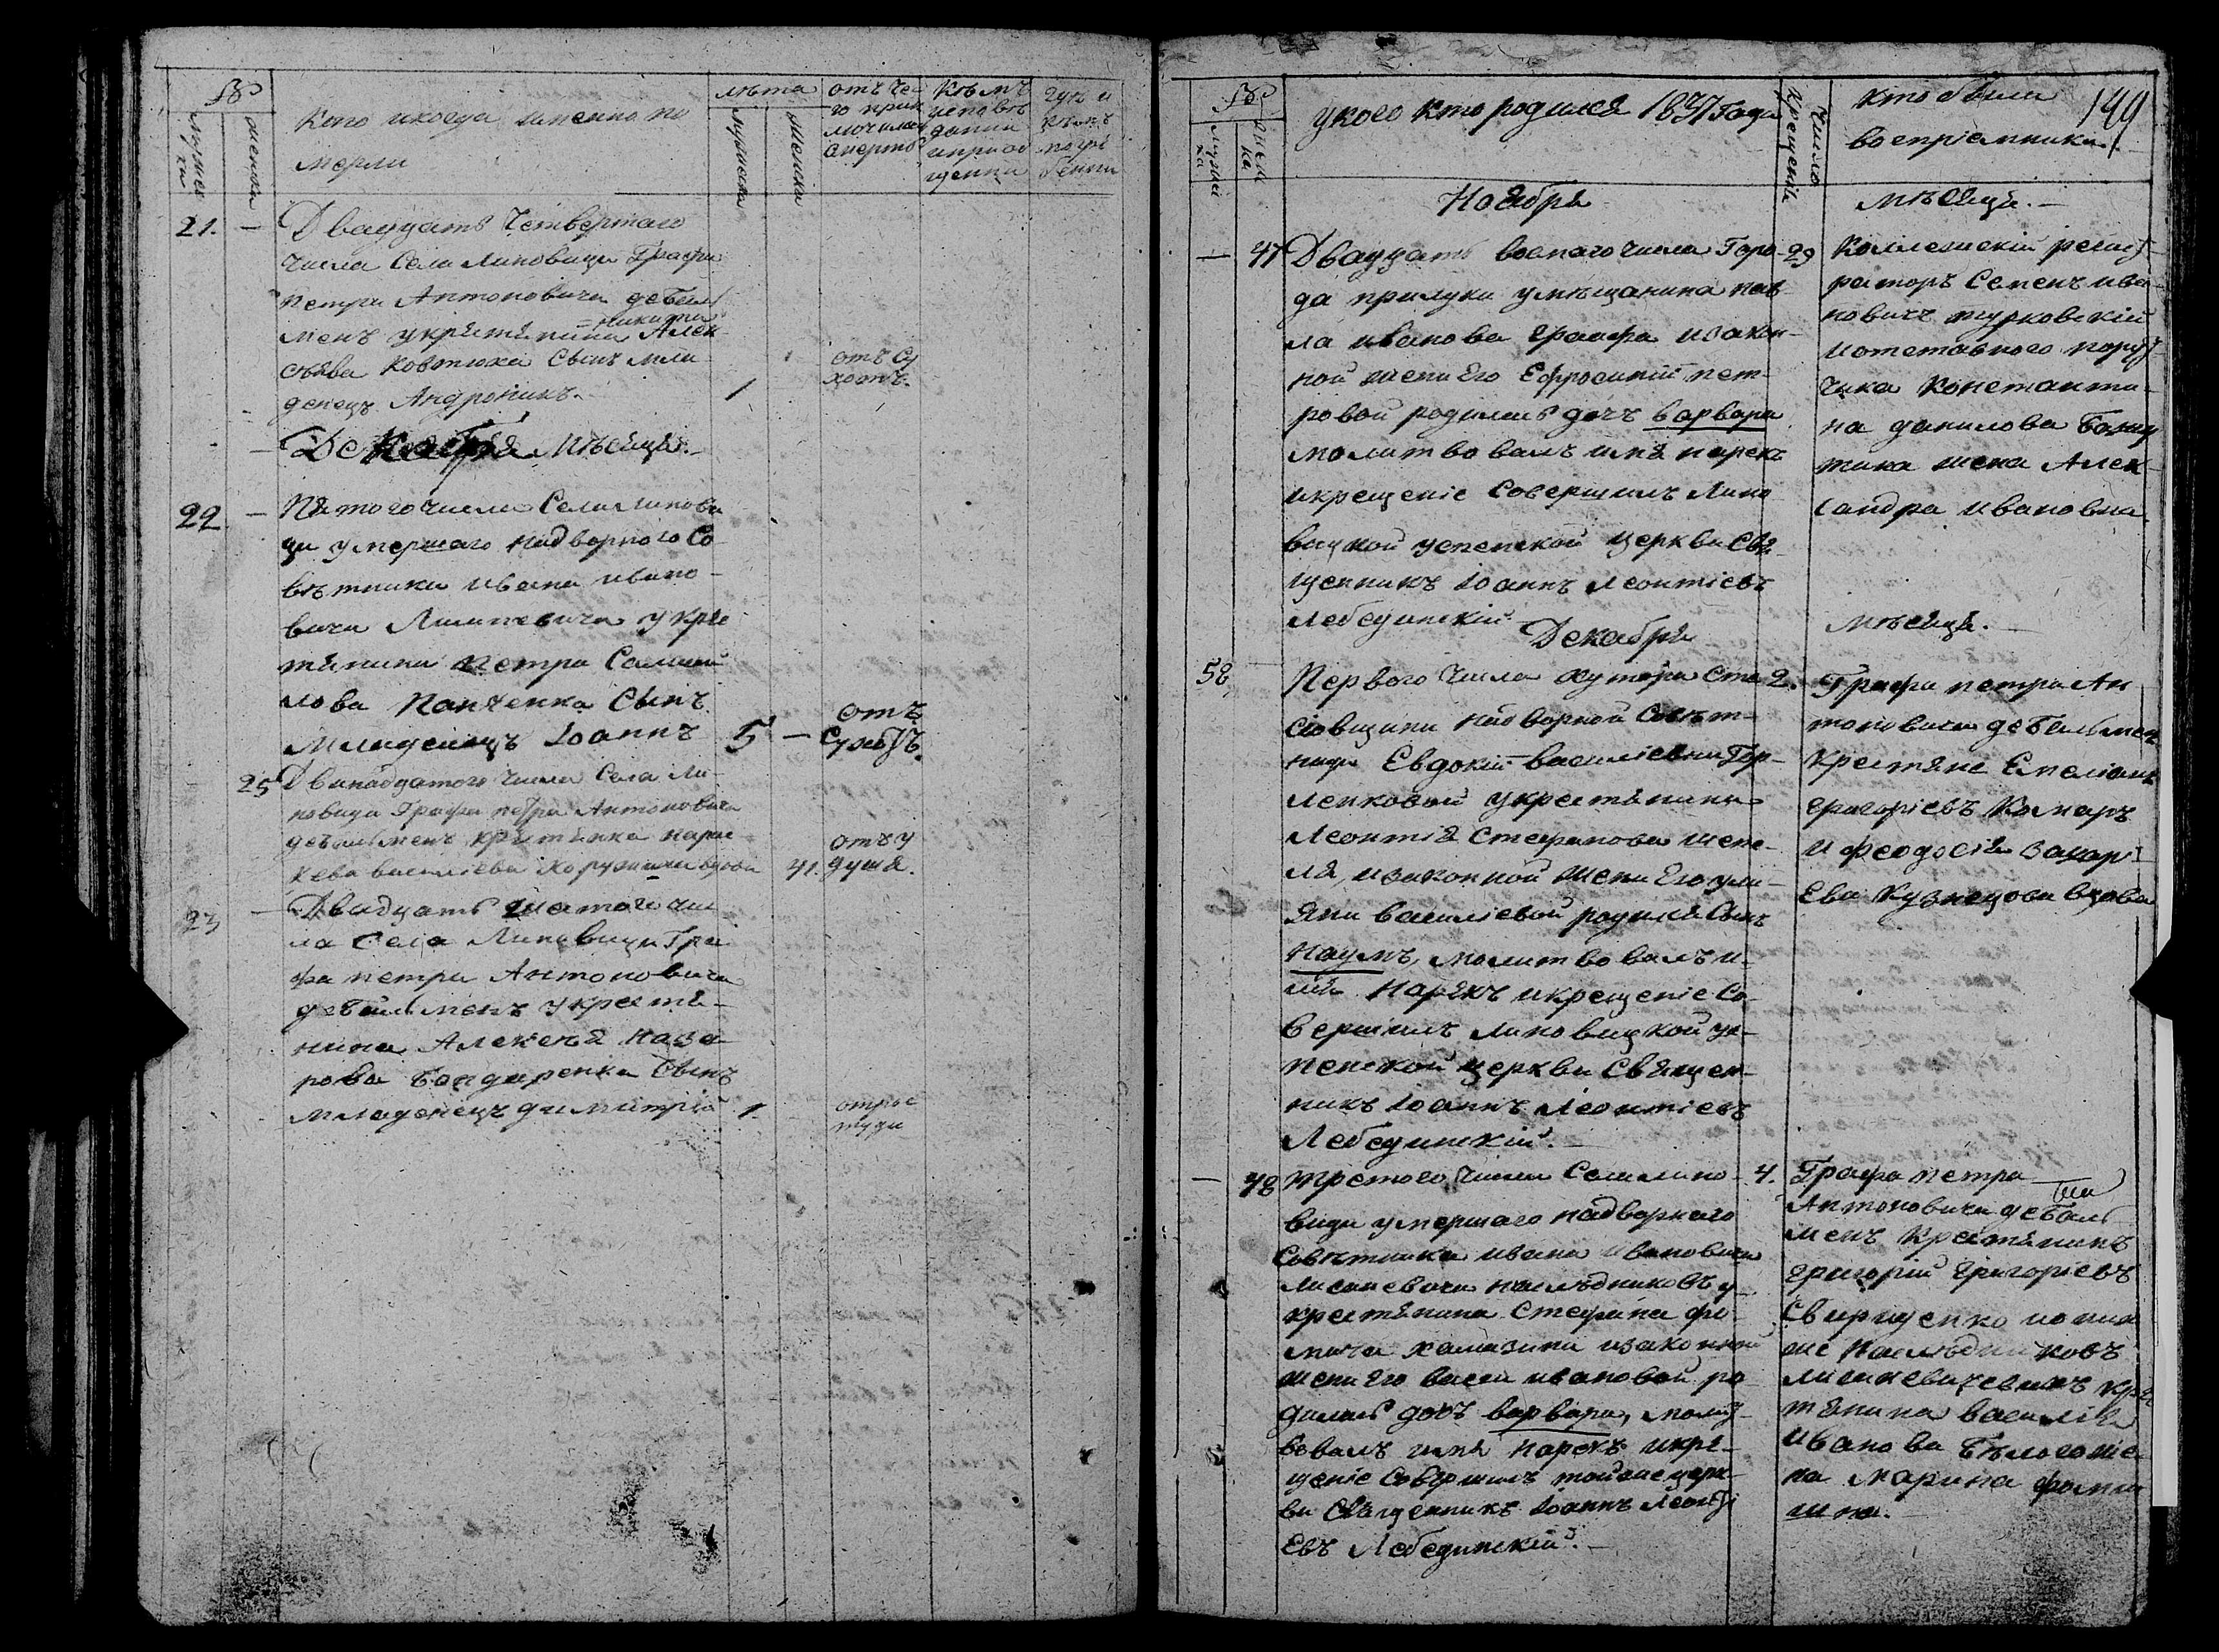 Кто и когда именно по
мерли
лѣта
мужеска
женска
отъ че-
го прик
лючилась
смерть
Кѣмъ
исповѣ
даны
и приоб
щены
Гдѣ и
кѣмъ
погре
бенны
21. —
Двадцать Четвертаго
числа Села Липовици Графа
петра Антоновича дебаль
менъ укрестянина Никиты Алек
сѣева Ковтюха Сынъ мла
денецъ Андроникъ.
1
отъ су
хотъ.
Декабря Мѣсяца.
22. —
Пятого числа Села Липови
ци умершаго надворного Со
вѣтника ивана ивано-
вича Лисаневича у кре
тянина петра Самой
лова Панченка Сынъ
Младенецъ Іоаннъ
5 —
отъ
Сухотъ.
25
Дванадцатого числа Села Ли-
повица Графа петра Антоновича
дебальменъ крестянка
василіева вдова
41.
отъ у
душя.
23 —
Двадцать числа
Села Липовици Гра
фа петра Антоновича
дебальменъ укрестя-
нина Алексѣя Наза
рова Бондаренка Сынъ
младенецъ димитрій
1.
отрос
туди
мужес
ка
женс
ка
у кого кто родился 1837 Года
Число
Крещенія
кто были
воспріемники
149
Ноября
мѣсяца. —
— 47
Двадцать восмаго числа Горо-
да прилуки умѣщанина пав-
ла иванова Граафа изакон-
ной жени Его Ефросиніи пет-
ровой родилась дочъ варвара
молитвовалъ имя нарекъ
икрещеніе Совершилъ Липо
вицкой успенской церкви Свя
щенникъ Іоаннъ Леонтіевъ
Лебединскій
29
Коллежскій регист
раторъ Семенъ ива
новичъ турковскій
иотставного пору
чика Константи-
на данилова
жена Алек
сандра ивановна.
Декабря
мѣсяца. —
58
Первого числа хутора Ста
совщини надворной Совѣт-
ници Евдокіи василіевни Гор-
ленковой укрестянина
Леонтія Стефанова Шепе-
ля, изаконной жени Его ули-
яни василіевой родился Сынъ
Наумъ, молитвовалъ и-
мя Нарекъ икрещеніе Со-
вершилъ липовицкой ус-
пенской церкви Священ-
никъ Іоаннъ Леонтіевъ
Лебединскій. —
2.
Графа петра Ан
тоновича дебальмен
Крестяне Емеліанъ
григоріевъ Комаръ
и феодосія захарі
Ева Кузнецова вдова
— 48
третого числа Села липо-
вици умершаго надворного
Совѣтника ивана ивановича
Лисаневича наслѣдниковъ у
крестянина Стефана фо-
мича изаконной
жени Его васси ивановой ро-
дилась дочъ варвара, молит
вовалъ имя нарекъ икре-
щеніе Совершилъ тойже церк-
ви Священникъ Іоаннъ Леонті
Евъ Лебединскій. —
4.
Графа петра
Антоновича дебаль
менъ Крестянинъ
григорій григоріевъ
Свирщенко
наслѣдниковъ
лисаневичевихъ кре
тянина василія
иванова Бѣлого же-
на Марина